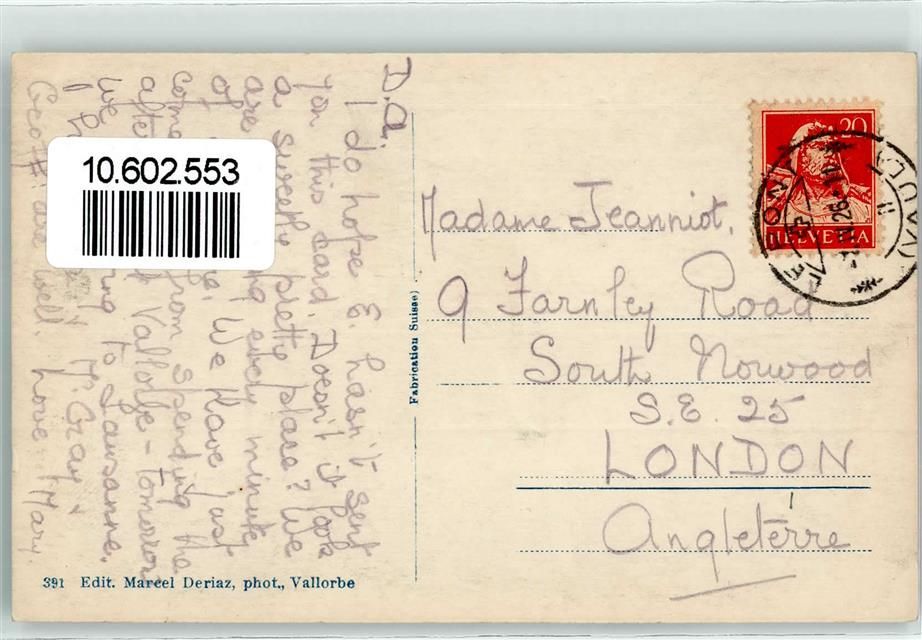 D.A.
I do hope E. hasn't sent
you this card. Doesn't it look
a sweetly pretty place? We
are every minute
of We have just
come from spending the
after Vallorbe - tomorrow
we to Lausanne.
Mr. Gray &
Geoff. are well. Love Mary
10.602.553
Madame Jeanniot,
9 Farnley Road
South Norwood
S.E. 25
LONDON
Angleterre
20
HELVETIA
Fabrication Suisse
391 Edit. Marcel Deriaz, phot., Vallorbe